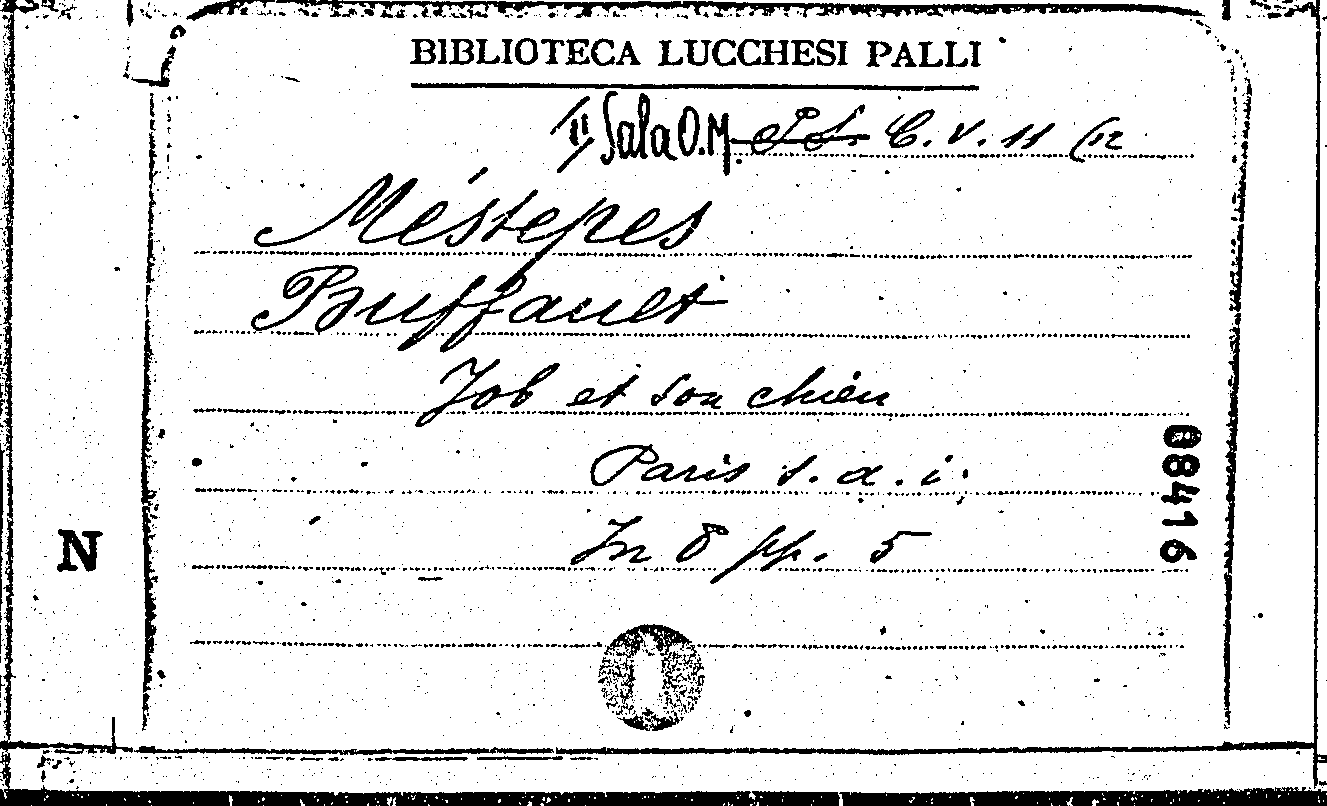 BIBLIOTECA LUCCHESI PALLI
II Sala O.M. C. V. 11 (12
Méstepes
Buffault
Job et son chien
Paris s. a. i.
In 8 pp. 5
08416
N